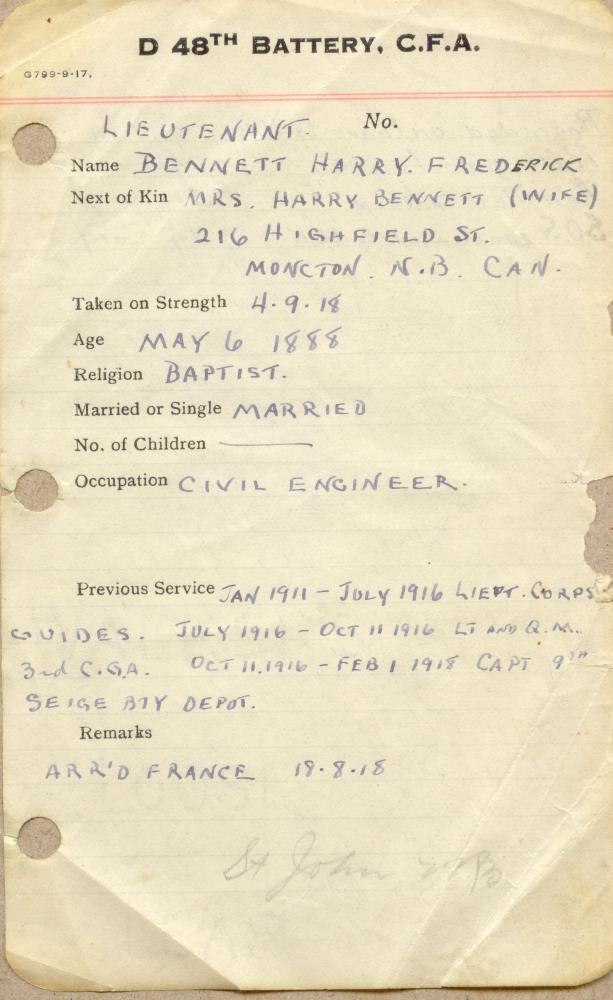 D 48TH BATTERY, C.F.A.
G799-9-17.
LIEUTENANT. No.
Name BENNETT HARRY. FREDERICK
Next of Kin MRS. HARRY BENNETT (WIFE)
216 HIGHFIELD ST.
MONCTON. N.B. CAN.
Taken on Strength 4.9.18
Age MAY 6 1888
Religion BAPTIST.
Married or Single MARRIED
No. of Children —
Occupation CIVIL ENGINEER.
Previous Service JAN 1911 - JULY 1916 LIEUT. CORPS
GUIDES. JULY 1916 - OCT 11 1916 LT AND Q.M.
3rd C.G.A. OCT 11.1916 - FEB 1 1918 CAPT 9TH
SEIGE BTY DEPOT.
Remarks
ARR'D FRANCE 18.8.18
St John NB